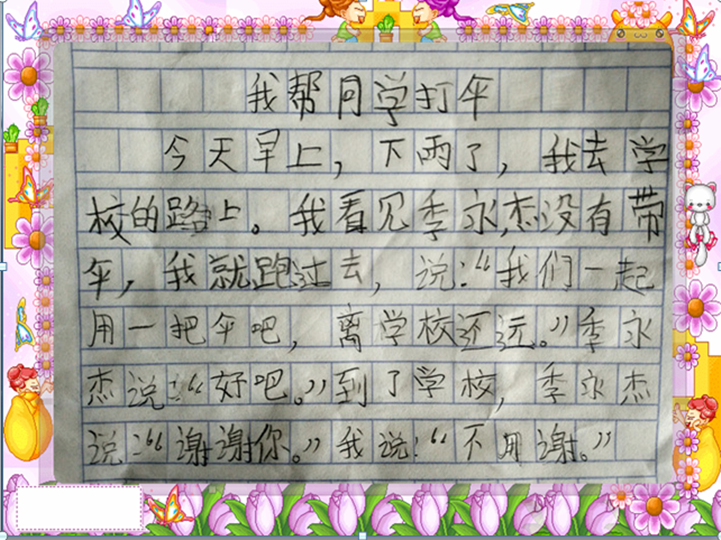 我帮同学打伞
今天早上，下雨了，我去学
校的路上。我看见季永杰没有带
伞，我就跑过去，说：“我们一起
用一把伞吧，离学校还远。”季永
杰说：“好吧。”到了学校，季永杰
说：“谢谢你。”我说：“不用谢。”